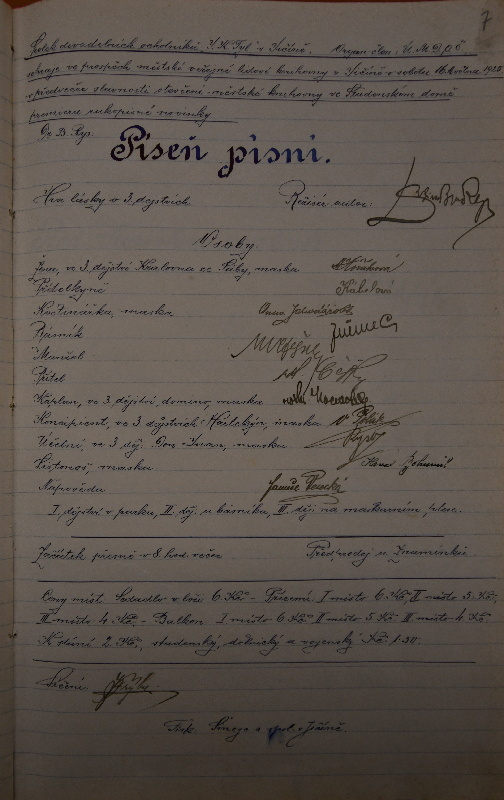 7
Spolek divadelních ochotníků J. K. Tyl v Jičíně. Organ. člen Ú. M. D. O. Č.
sehraje ve prospěch městské veřejné lidové knihovny v Jičíně v sobotu 16. května 1925
v předvečer slavnosti otevření městské knihovny ve Studentském domě
premieru rukopisné novinky
Dr. B. Rys:
Píseň písní.
Hra lásky o 3. dějstvích Režisér autor:
Osoby:
Žena, ve 3. dějství Královna ze Sáby, maska
Přítelkyně
Květinářka, maska Anna
Básník
Manžel
Přítel
Kaplan, ve 3. dějství domino, maska
Koncipient, ve 3. dějstvích Harlekýn, maska
Učední, ve 3. děj. Don Juan, maska
Listonoš, maska Karel
Nápověda
I. dějství v parku, II. děj. u básníka, III. děj. na maškarním plese.
Začátek přesně v 8. hod. večer Předprodej u Znamínků
Ceny míst. Sedadlo v loži 6 Kč - Přízemí I místo 6 Kč II místo 5 Kč
III místo 4 Kč. - Balkon I místo 6 Kč II místo 5 Kč III místo 4 Kč
K stání 2 Kč, studenský, dělnický a vojenský Kč 1.50.
Tisk. a spol. v Jičíně.